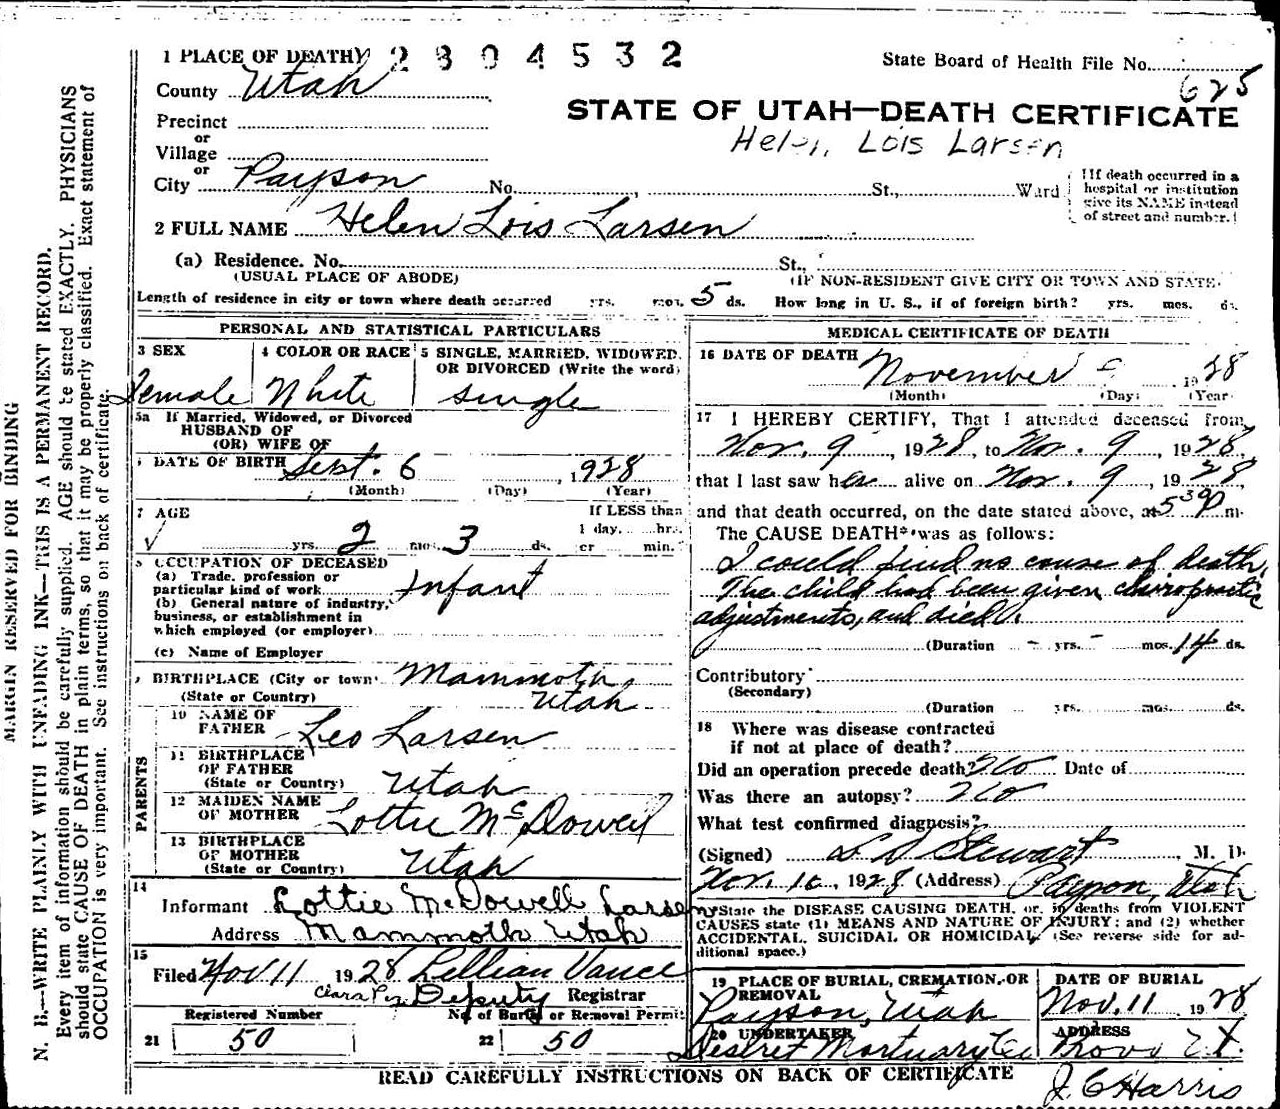 1 PLACE OF DEATH 2804532
State Board of Health File No. 625
County Utah
STATE OF UTAH—DEATH CERTIFICATE
Precinct
Helen Lois Larsen
or
Village
or
City Payson No. , St., Ward
(If death occurred in a
hospital or institution
give its NAME instead
of street and number.)
2 FULL NAME Helen Lois Larsen
(a) Residence. No. St.,
(USUAL PLACE OF ABODE) (IF NON-RESIDENT GIVE CITY OR TOWN AND STATE.
Length of residence in city or town where death occurred yrs. mos. 5 ds. How long in U. S., if of foreign birth? yrs. mos. ds.
PERSONAL AND STATISTICAL PARTICULARS
3 SEX 4 COLOR OR RACE 5 SINGLE, MARRIED, WIDOWED,
OR DIVORCED (Write the word)
Female White single
5a If Married, Widowed, or Divorced
HUSBAND OF
(OR) WIFE OF
DATE OF BIRTH Sept. 6, 1928
(Month) (Day) (Year)
7 AGE If LESS than
1 day, hrs.
yrs. 2 mos. 3 ds. or min.
OCCUPATION OF DECEASED
(a) Trade, profession or
particular kind of work Infant
(b) General nature of industry,
business, or establishment in
which employed (or employer)
(c) Name of Employer
BIRTHPLACE (City or town) Mammoth,
(State or Country) Utah
PARENTS
10 NAME OF
FATHER Leo Larsen
11 BIRTHPLACE
OF FATHER
(State or Country) Utah
12 MAIDEN NAME
OF MOTHER Lottie McDowell
13 BIRTHPLACE
OF MOTHER
(State or Country) Utah
14
Informant Lottie McDowell Larsen
Address Mammoth Utah
15
Filed Nov 11 1928 Lillian Vance
Deputy Registrar
Registered Number No. of Burial or Removal Permit
21 50 22 50
MEDICAL CERTIFICATE OF DEATH
16 DATE OF DEATH November 1928
(Month) (Day) (Year)
17 I HEREBY CERTIFY, That I attended deceased from
Nov. 9, 1928, to Nov. 9, 1928,
that I last saw her alive on Nov. 9, 1928,
and that death occurred, on the date stated above, at 530 P m.
The CAUSE DEATH* was as follows:
I could find no cause of death,
The child had been given chiropractic
adjustments, and died.
(Duration - yrs. - mos. 14 ds.
Contributory
(Secondary)
(Duration yrs. mos. ds.
18 Where was disease contracted
if not at place of death?
Did an operation precede death? No Date of
Was there an autopsy? No
What test confirmed diagnosis?
(Signed) L D Stewart, M. D.
Nov. 10, 1928 (Address) Payson, Utah
*State the DISEASE CAUSING DEATH, or, in deaths from VIOLENT
CAUSES state (1) MEANS AND NATURE OF INJURY; and (2) whether
ACCIDENTAL, SUICIDAL OR HOMICIDAL. (See reverse side for ad-
ditional space.)
19 PLACE OF BURIAL, CREMATION, OR
REMOVAL
Payson, Utah
DATE OF BURIAL
Nov. 11 1928
20 UNDERTAKER
Deseret Mortuary Co
ADDRESS
Provo Ut.
READ CAREFULLY INSTRUCTIONS ON BACK OF CERTIFICATE
J. C Harris
MARGIN RESERVED FOR BINDING
N. B.—WRITE PLAINLY WITH UNFADING INK—THIS IS A PERMANENT RECORD.
Every item of information should be carefully supplied. AGE should be stated EXACTLY. PHYSICIANS
should state CAUSE OF DEATH in plain terms, so that it may be properly classified. Exact statement of
OCCUPATION is very important. See instructions on back of certificate.